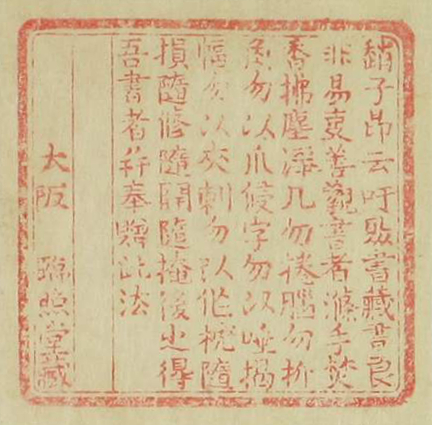 趙子昂云吁聚書藏書良
非易事善觀書者滌手焚
香拂塵淨几勿捲腦勿折
角勿以爪侵字勿以唾揭
幅勿以夾刺勿以作枕隨
損隨修隨開隨掩後之得
吾書者并奉贈此法
大阪 臨照堂藏